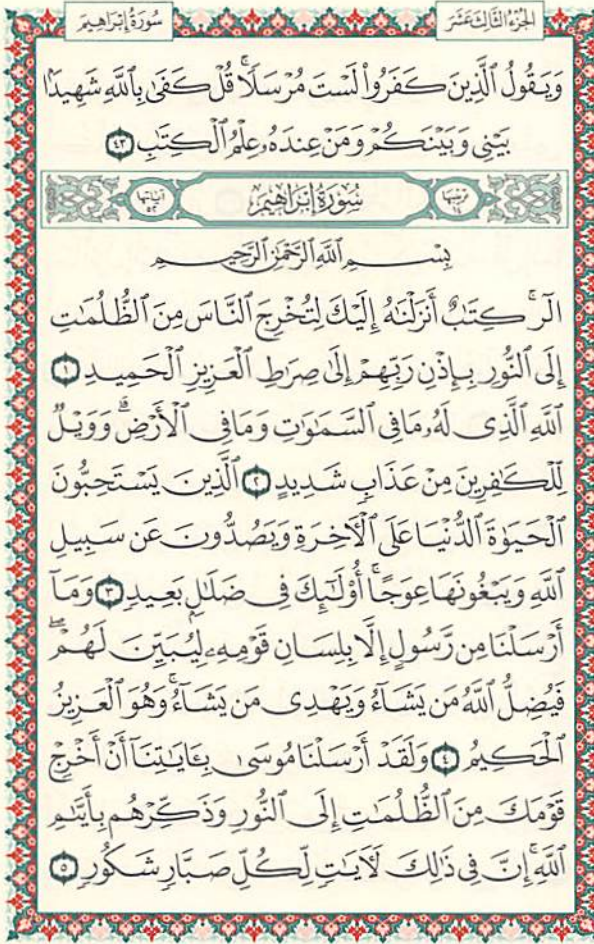 سُورَةُ إِبْرَاهِيمَ الجُزْءُ الثَّالِثَ عَشَرَ
وَيَقُولُ ٱلَّذِينَ كَفَرُوا۟ لَسْتَ مُرْسَلًا ۚ قُلْ كَفَىٰ بِٱللَّهِ شَهِيدًۢا
بَيْنِى وَبَيْنَكُمْ وَمَنْ عِندَهُۥ عِلْمُ ٱلْكِتَـٰبِ ٤٣
ترتيبها ١٤ سُورَةُ إِبْرَاهِيمَ آياتها ٥٢
بِسْمِ ٱللَّهِ ٱلرَّحْمَـٰنِ ٱلرَّحِيمِ
الٓر ۚ كِتَـٰبٌ أَنزَلْنَـٰهُ إِلَيْكَ لِتُخْرِجَ ٱلنَّاسَ مِنَ ٱلظُّلُمَـٰتِ
إِلَى ٱلنُّورِ بِإِذْنِ رَبِّهِمْ إِلَىٰ صِرَٰطِ ٱلْعَزِيزِ ٱلْحَمِيدِ ١
ٱللَّهِ ٱلَّذِى لَهُۥ مَا فِى ٱلسَّمَـٰوَٰتِ وَمَا فِى ٱلْأَرْضِ ۗ وَوَيْلٌ
لِّلْكَـٰفِرِينَ مِنْ عَذَابٍ شَدِيدٍ ٢ ٱلَّذِينَ يَسْتَحِبُّونَ
ٱلْحَيَوٰةَ ٱلدُّنْيَا عَلَى ٱلْـَٔاخِرَةِ وَيَصُدُّونَ عَن سَبِيلِ
ٱللَّهِ وَيَبْغُونَهَا عِوَجًا ۚ أُو۟لَـٰٓئِكَ فِى ضَلَـٰلٍۭ بَعِيدٍ ٣ وَمَآ
أَرْسَلْنَا مِن رَّسُولٍ إِلَّا بِلِسَانِ قَوْمِهِۦ لِيُبَيِّنَ لَهُمْ ۖ
فَيُضِلُّ ٱللَّهُ مَن يَشَآءُ وَيَهْدِى مَن يَشَآءُ ۚ وَهُوَ ٱلْعَزِيزُ
ٱلْحَكِيمُ ٤ وَلَقَدْ أَرْسَلْنَا مُوسَىٰ بِـَٔايَـٰتِنَآ أَنْ أَخْرِجْ
قَوْمَكَ مِنَ ٱلظُّلُمَـٰتِ إِلَى ٱلنُّورِ وَذَكِّرْهُم بِأَيَّىٰمِ
ٱللَّهِ ۚ إِنَّ فِى ذَٰلِكَ لَـَٔايَـٰتٍ لِّكُلِّ صَبَّارٍ شَكُورٍ ٥